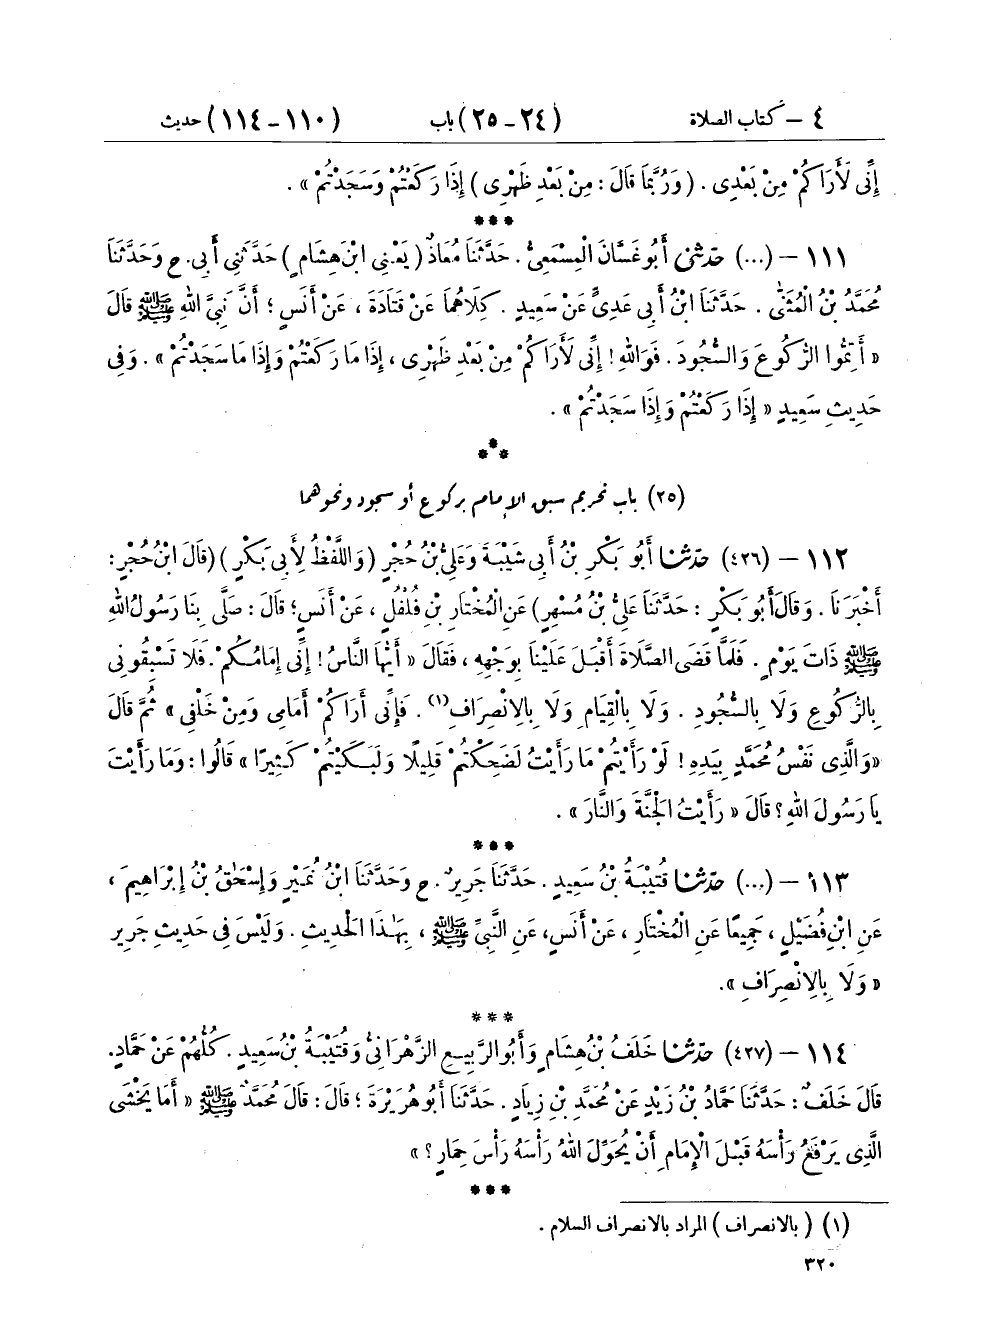 ٤ – كتاب الصلاة (٢٤-٢٥) باب (١١٠-١١٤) حديث
إِنِّى لَأَرَاكُمْ مِنْ بَعْدِى . ( وَرُبَّمَا قَالَ : مِنْ بَعْدِ ظَهْرِى ) إِذَا رَكَعْتُمْ وَسَجَدْتُمْ » .
***
١١١ – (...) حَدَّثَنِى أَبُو غَسَّانَ الْمِسْمَعِىُّ . حَدَّثَنَا مُعَاذٌ ( يَعْنِى ابْنَ هِشَامٍ ) حَدَّثَنِى أَبِى . ح وَحَدَّثَنَا
مُحَمَّدُ بْنُ الْمُثَنَّى . حَدَّثَنَا ابْنُ أَبِى عَدِىٍّ عَنْ سَعِيدٍ . كِلَاهُمَا عَنْ قَتَادَةَ ، عَنْ أَنَسٍ ؛ أَنَّ نَبِىَّ اللهِ ﷺ قَالَ
« أَتِمُّوا الرُّكُوعَ وَالسُّجُودَ . فَوَاللهِ ! إِنِّى لَأَرَاكُمْ مِنْ بَعْدِ ظَهْرِى ، إِذَا مَا رَكَعْتُمْ وَإِذَا مَا سَجَدْتُمْ » . وَفِى
حَدِيثِ سَعِيدٍ « إِذَا رَكَعْتُمْ وَإِذَا سَجَدْتُمْ » .
***
(٢٥) باب تحريم سبق الإمام بركوع أو سجود ونحوهما
١١٢ – (٤٢٦) حَدَّثَنَا أَبُو بَكْرِ بْنُ أَبِى شَيْبَةَ وَعَلِىُّ بْنُ حُجْرٍ ( وَاللَّفْظُ لِأَبِى بَكْرٍ ) (قَالَ ابْنُ حُجْرٍ :
أَخْبَرَنَا . وَقَالَ أَبُو بَكْرٍ : حَدَّثَنَا عَلِىُّ بْنُ مُسْهِرٍ) عَنِ الْمُخْتَارِ بْنِ فُلْفُلٍ ، عَنْ أَنَسٍ؛ قَالَ : صَلَّى بِنَا رَسُولُ اللهِ
ﷺ ذَاتَ يَوْمٍ . فَلَمَّا قَضَى الصَّلَاةَ أَقْبَلَ عَلَيْنَا بِوَجْهِهِ ، فَقَالَ « أَيُّهَا النَّاسُ ! إِنِّى إِمَامُكُمْ . فَلَا تَسْبِقُونِى
بِالرُّكُوعِ وَلَا بِالسُّجُودِ . وَلَا بِالْقِيَامِ وَلَا بِالِانْصِرَافِ(١) . فَإِنِّى أَرَاكُمْ أَمَامِى وَمِنْ خَلْفِى » ثُمَّ قَالَ
«وَالَّذِى نَفْسُ مُحَمَّدٍ بِيَدِهِ ! لَوْ رَأَيْتُمْ مَا رَأَيْتُ لَضَحِكْتُمْ قَلِيلًا وَلَبَكَيْتُمْ كَثِيرًا » قَالُوا : وَمَا رَأَيْتَ
يَا رَسُولَ اللهِ ؟ قَالَ « رَأَيْتُ الْجَنَّةَ وَالنَّارَ » .
***
١١٣ – (...) حَدَّثَنَا قُتَيْبَةُ بْنُ سَعِيدٍ . حَدَّثَنَا جَرِيرٌ . ح وَحَدَّثَنَا ابْنُ نُمَيْرٍ وَإِسْحَٰقُ بْنُ إِبْرَاهِيمَ ،
عَنِ ابْنِ فُضَيْلٍ ، جَمِيعًا عَنِ الْمُخْتَارِ ، عَنْ أَنَسٍ، عَنِ النَّبِىِّ ﷺ ، بِهَٰذَا الْحَدِيثِ . وَلَيْسَ فِى حَدِيثِ جَرِيرٍ
« وَلَا بِالِانْصِرَافِ ».
***
١١٤ – (٤٢٧) حَدَّثَنَا خَلَفُ بْنُ هِشَامٍ وَأَبُو الرَّبِيعِ الزَّهْرَانِىُّ وَقُتَيْبَةُ بْنُ سَعِيدٍ . كُلُّهُمْ عَنْ حَمَّادٍ.
قَالَ خَلَفٌ : حَدَّثَنَا حَمَّادُ بْنُ زَيْدٍ عَنْ مُحَمَّدِ بْنِ زِيَادٍ . حَدَّثَنَا أَبُو هُرَيْرَةَ ؛ قَالَ : قَالَ مُحَمَّدٌ ﷺ « أَمَا يَخْشَى
الَّذِى يَرْفَعُ رَأْسَهُ قَبْلَ الْإِمَامِ أَنْ يُحَوِّلَ اللهُ رَأْسَهُ رَأْسَ حِمَارٍ ؟ »
***
(١) ( بالانصراف ) المراد بالانصراف السلام .
٣٢٠